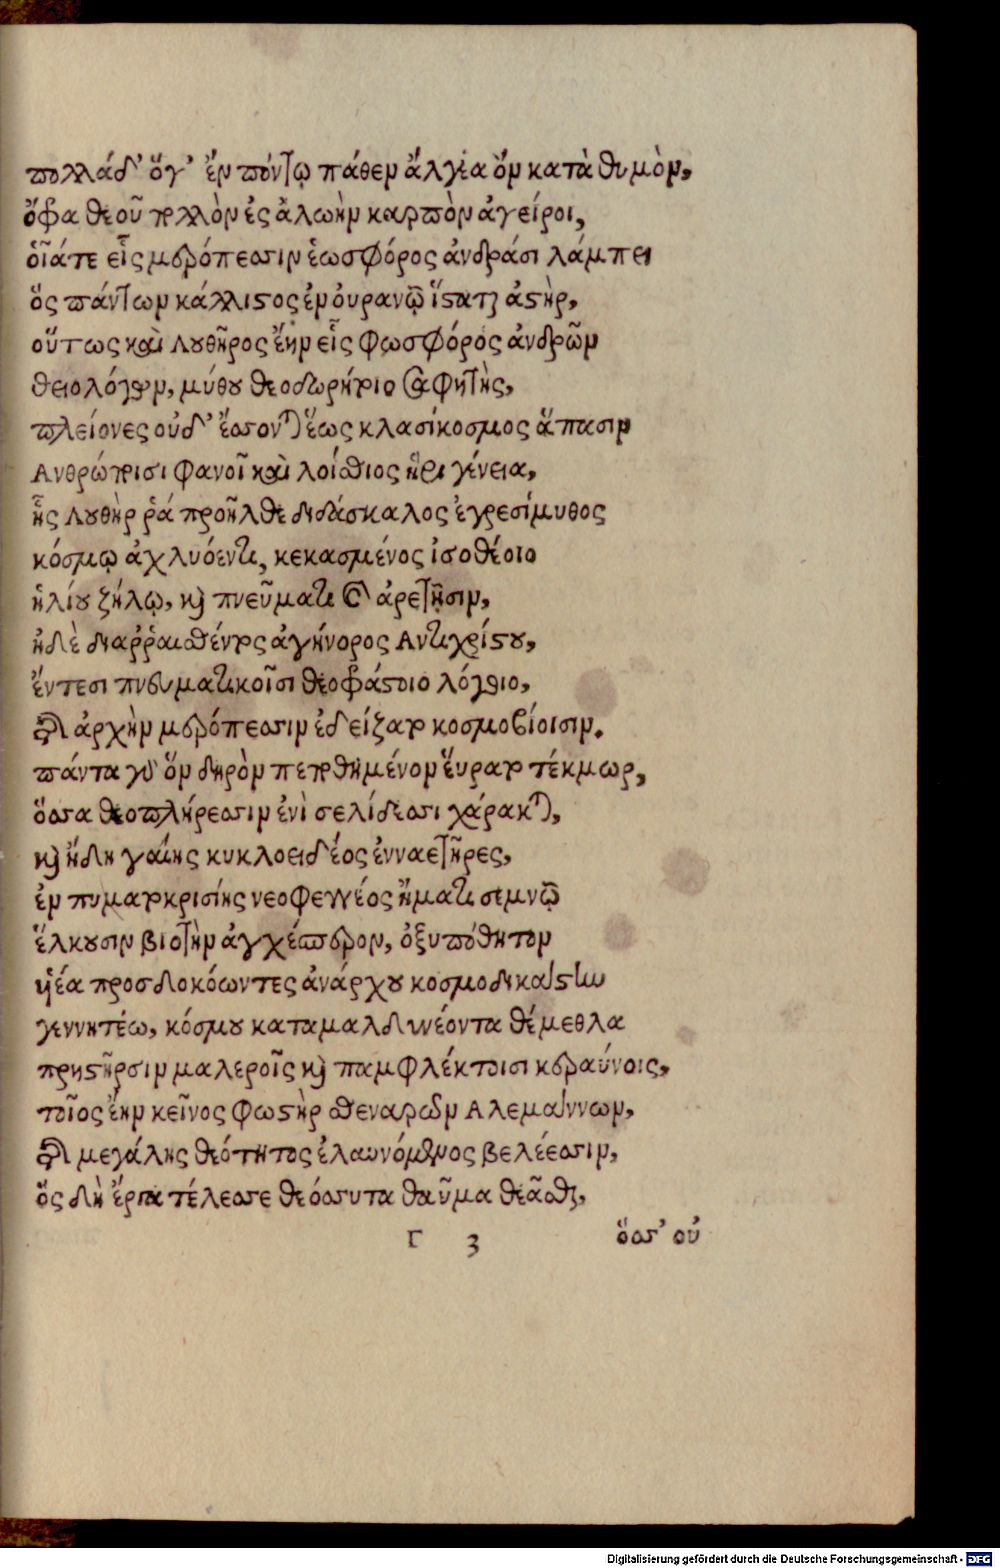 πολλὰ δ' ὅγ' ἐν πόντῳ πάθεν ἄλγεα ὃν κατὰ θυμὸν,
ὄφρα θεοῦ πολλὸν ἐς ἀλωὴν καρπὸν ἀγείροι,
οἷάτε εἷς μερόπεσσιν ἑωσφόρος ἀνδράσι λάμπει
ὃς πάντων κάλλιστος ἐν οὐρανῷ ἵσταται ἀστὴρ,
οὕτως καὶ Λουθῆρος ἔην εἷς φωσφόρος ἀνδρῶν
θειολόγων, μύθου θεοδωρήτοιο σαφητὴς,
πλείονες οὐδ' ἔσσονται ἕως κλασίκοσμος ἅπασιν
Ἀνθρώποισι φανοῖ καὶ λοίσθιος ἠριγένεια,
ἧς Λουθὴρ ῥά προῆλθε διδάσκαλος ἐγρεσίμυθος
κόσμῳ ἀχλυόεντι, κεκασμένος ἰσοθέοιο
ἡλίου ζήλῳ, καὶ πνεύματι ἀρετῇσιν,
ἠδὲ διαῤῥαισθέντος ἀγήνορος Ἀντιχρίστου,
ἔντεσι πνευματικοῖσι θεοφράστοιο λόγοιο,
ἀρχὴν μερόπεσσιν ἐδείξατο κοσμοβίοισιν.
πάντα γὸ ὃν δηρὸν πεποθημένον εὕρατο τέκμωρ,
ὅσσα θεοπλήρεσσιν ἐνὶ σελίδεσσι χάρακται,
καὶ ἤδη γαίης κυκλοειδέος ἐνναετῆρες,
ἐν πυματοκρισίης νεοφεγγέος ἤματι σεμνῷ
ἕλκουσιν βιοτὴν ἀγχέπορον, ὀξυπόθητον
ἠέα προσδοκόωντες ἀνάρχου κοσμοδικαστὼ
γεννητέω, κόσμου καταμαλδυνέοντα θέμεθλα
πρηστῆρσιν μαλεροῖς καὶ παμφλέκτοισι κεραύνοις,
τοῖος ἔην κεῖνος φωστὴρ σθεναρῶν Ἀλεμάννων,
μεγάλης θεότητος ἐλαυνόμενος βελέεσσιν,
ὃς δὴ ἔργα τέλεσσε θεόσσυτα θαῦμα θεᾶσθαι,
Γ 3 ὅσσ' οὐ
Digitalisierung gefördert durch die Deutsche Forschungsgemeinschaft - DFG